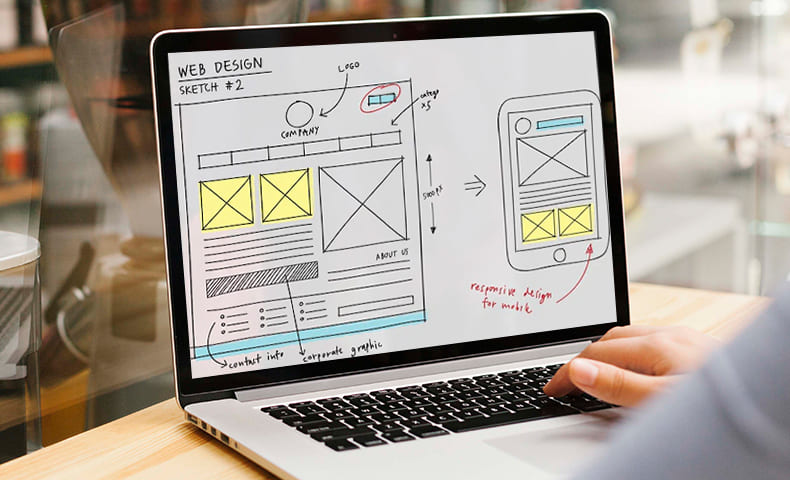 WEB DESIGN
SKETCH #2
LOGO
COMPANY
x5
ABOUT US
contact info
corporate graphic
responsive design
for mobile